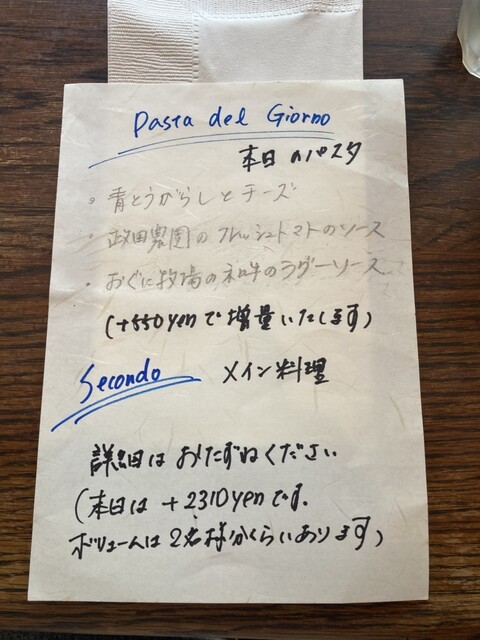 Pasta del Giorno
本日のパスタ
・青とうがらしとチーズ
・政田農園のフレッシュトマトのソース
・おぐに牧場の和牛のラグーソース
(+550yenで増量いたします)
Secondo メイン料理
詳細はおたずねください
(本日は+2310yenです.
ボリュームは2名様分くらいあります)